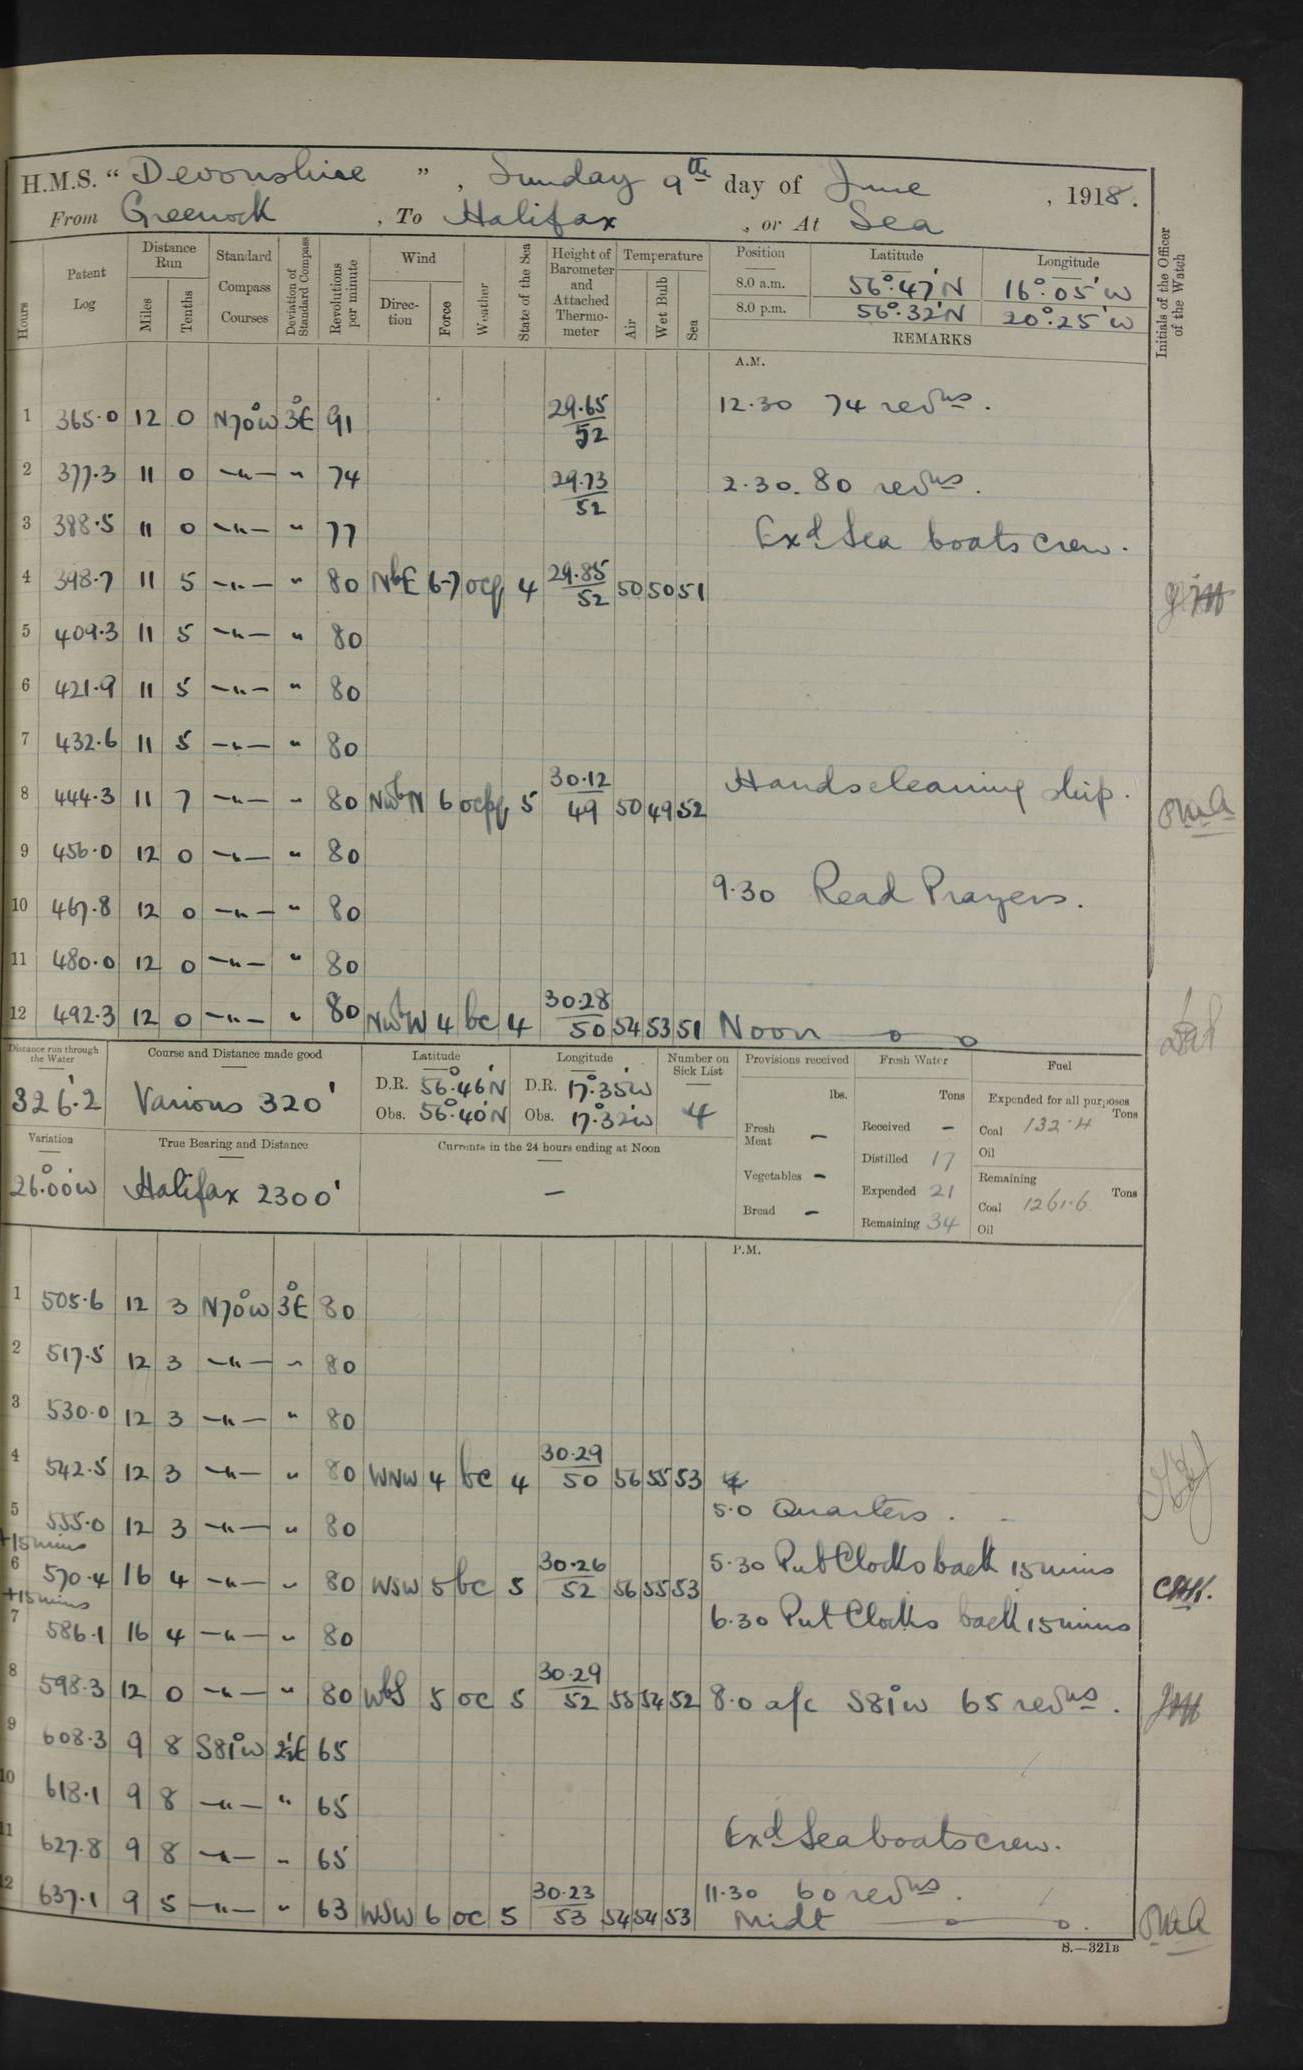 H.M.S. “ Devonshire ” , Sunday 9th day of June , 1918.
From Greenock , To Halifax , or At Sea
Hours Patent Log Distance Run Miles Tenths Standard Compass Courses Deviation of Standard Compass Revolutions per minute Wind Direc-tion Force Weather State of the Sea Height of Barometer and Attached Thermo-meter Temperature Air Wet Bulb Sea Position Latitude Longitude Initials of the Officer of the Watch
8.0 a.m. 56°.47'N 16°.05'W
8.0 p.m. 56°.32'N 20°.25'W
REMARKS
A.M.
1 365.0 12 0 N70°W 3°E 91 29.65 52 12.30 74 revns.
2 377.3 11 0 —"— " 74 29.73 52 2.30. 80 revns.
3 388.5 11 0 —"— " 77 Exd Sea boats crew.
4 398.7 11 5 —"— " 80 NbE 6-7 ocq 4 29.85 52 50 50 51
5 409.3 11 5 —"— " 80
6 421.9 11 5 —"— " 80
7 432.6 11 5 —"— " 80
8 444.3 11 7 —"— " 80 NWbN 6 ocpq 5 30.12 49 50 49 52 Hands cleaning ship.
9 456.0 12 0 —"— " 80
10 467.8 12 0 —"— " 80 9.30 Read Prayers.
11 480.0 12 0 —"— " 80
12 492.3 12 0 —"— " 80 NWbW 4 bc 4 30.28 50 54 53 51 Noon
Distance run through the Water Course and Distance made good Latitude Longitude Number on Sick List Provisions received Fresh Water Fuel
326.2 Various 320' D.R. 56°.46'N D.R. 17°.35'W 4 lbs. Tons Expended for all purposes Tons
Obs. 56°.40'N Obs. 17°.32'W Fresh Meat – Received – Coal 132.4
Variation True Bearing and Distance Currents in the 24 hours ending at Noon Distilled 17 Oil
26°.00'W Halifax 2300' — Vegetables – Expended 21 Remaining Tons
Bread – Remaining 34 Coal 1261.6
Oil
P.M.
1 505.6 12 3 N70°W 3°E 80
2 517.5 12 3 —"— " 80
3 530.0 12 3 —"— " 80
4 542.5 12 3 —"— " 80 WNW 4 bc 4 30.29 50 56 55 53
5 555.0 12 3 —"— " 80 5.0 Quarters.
+15 mins
6 570.4 16 4 —"— " 80 WSW 5 bc 5 30.26 52 56 55 53 5.30 Put Clocks back 15 mins
+15 mins
7 586.1 16 4 —"— " 80 6.30 Put Clocks back 15 mins
8 598.3 12 0 —"— " 80 WbS 5 oc 5 30.29 52 55 54 52 8.0 a/c S81°W 65 revns.
9 608.3 9 8 S81°W 2½E 65
10 618.1 9 8 —"— " 65
11 627.8 9 8 —"— " 65 Exd Sea boats crew.
12 637.1 9 5 —"— " 63 WSW 6 oc 5 30.23 53 54 54 53 11.30 60 revns.
Midt
S.—321B